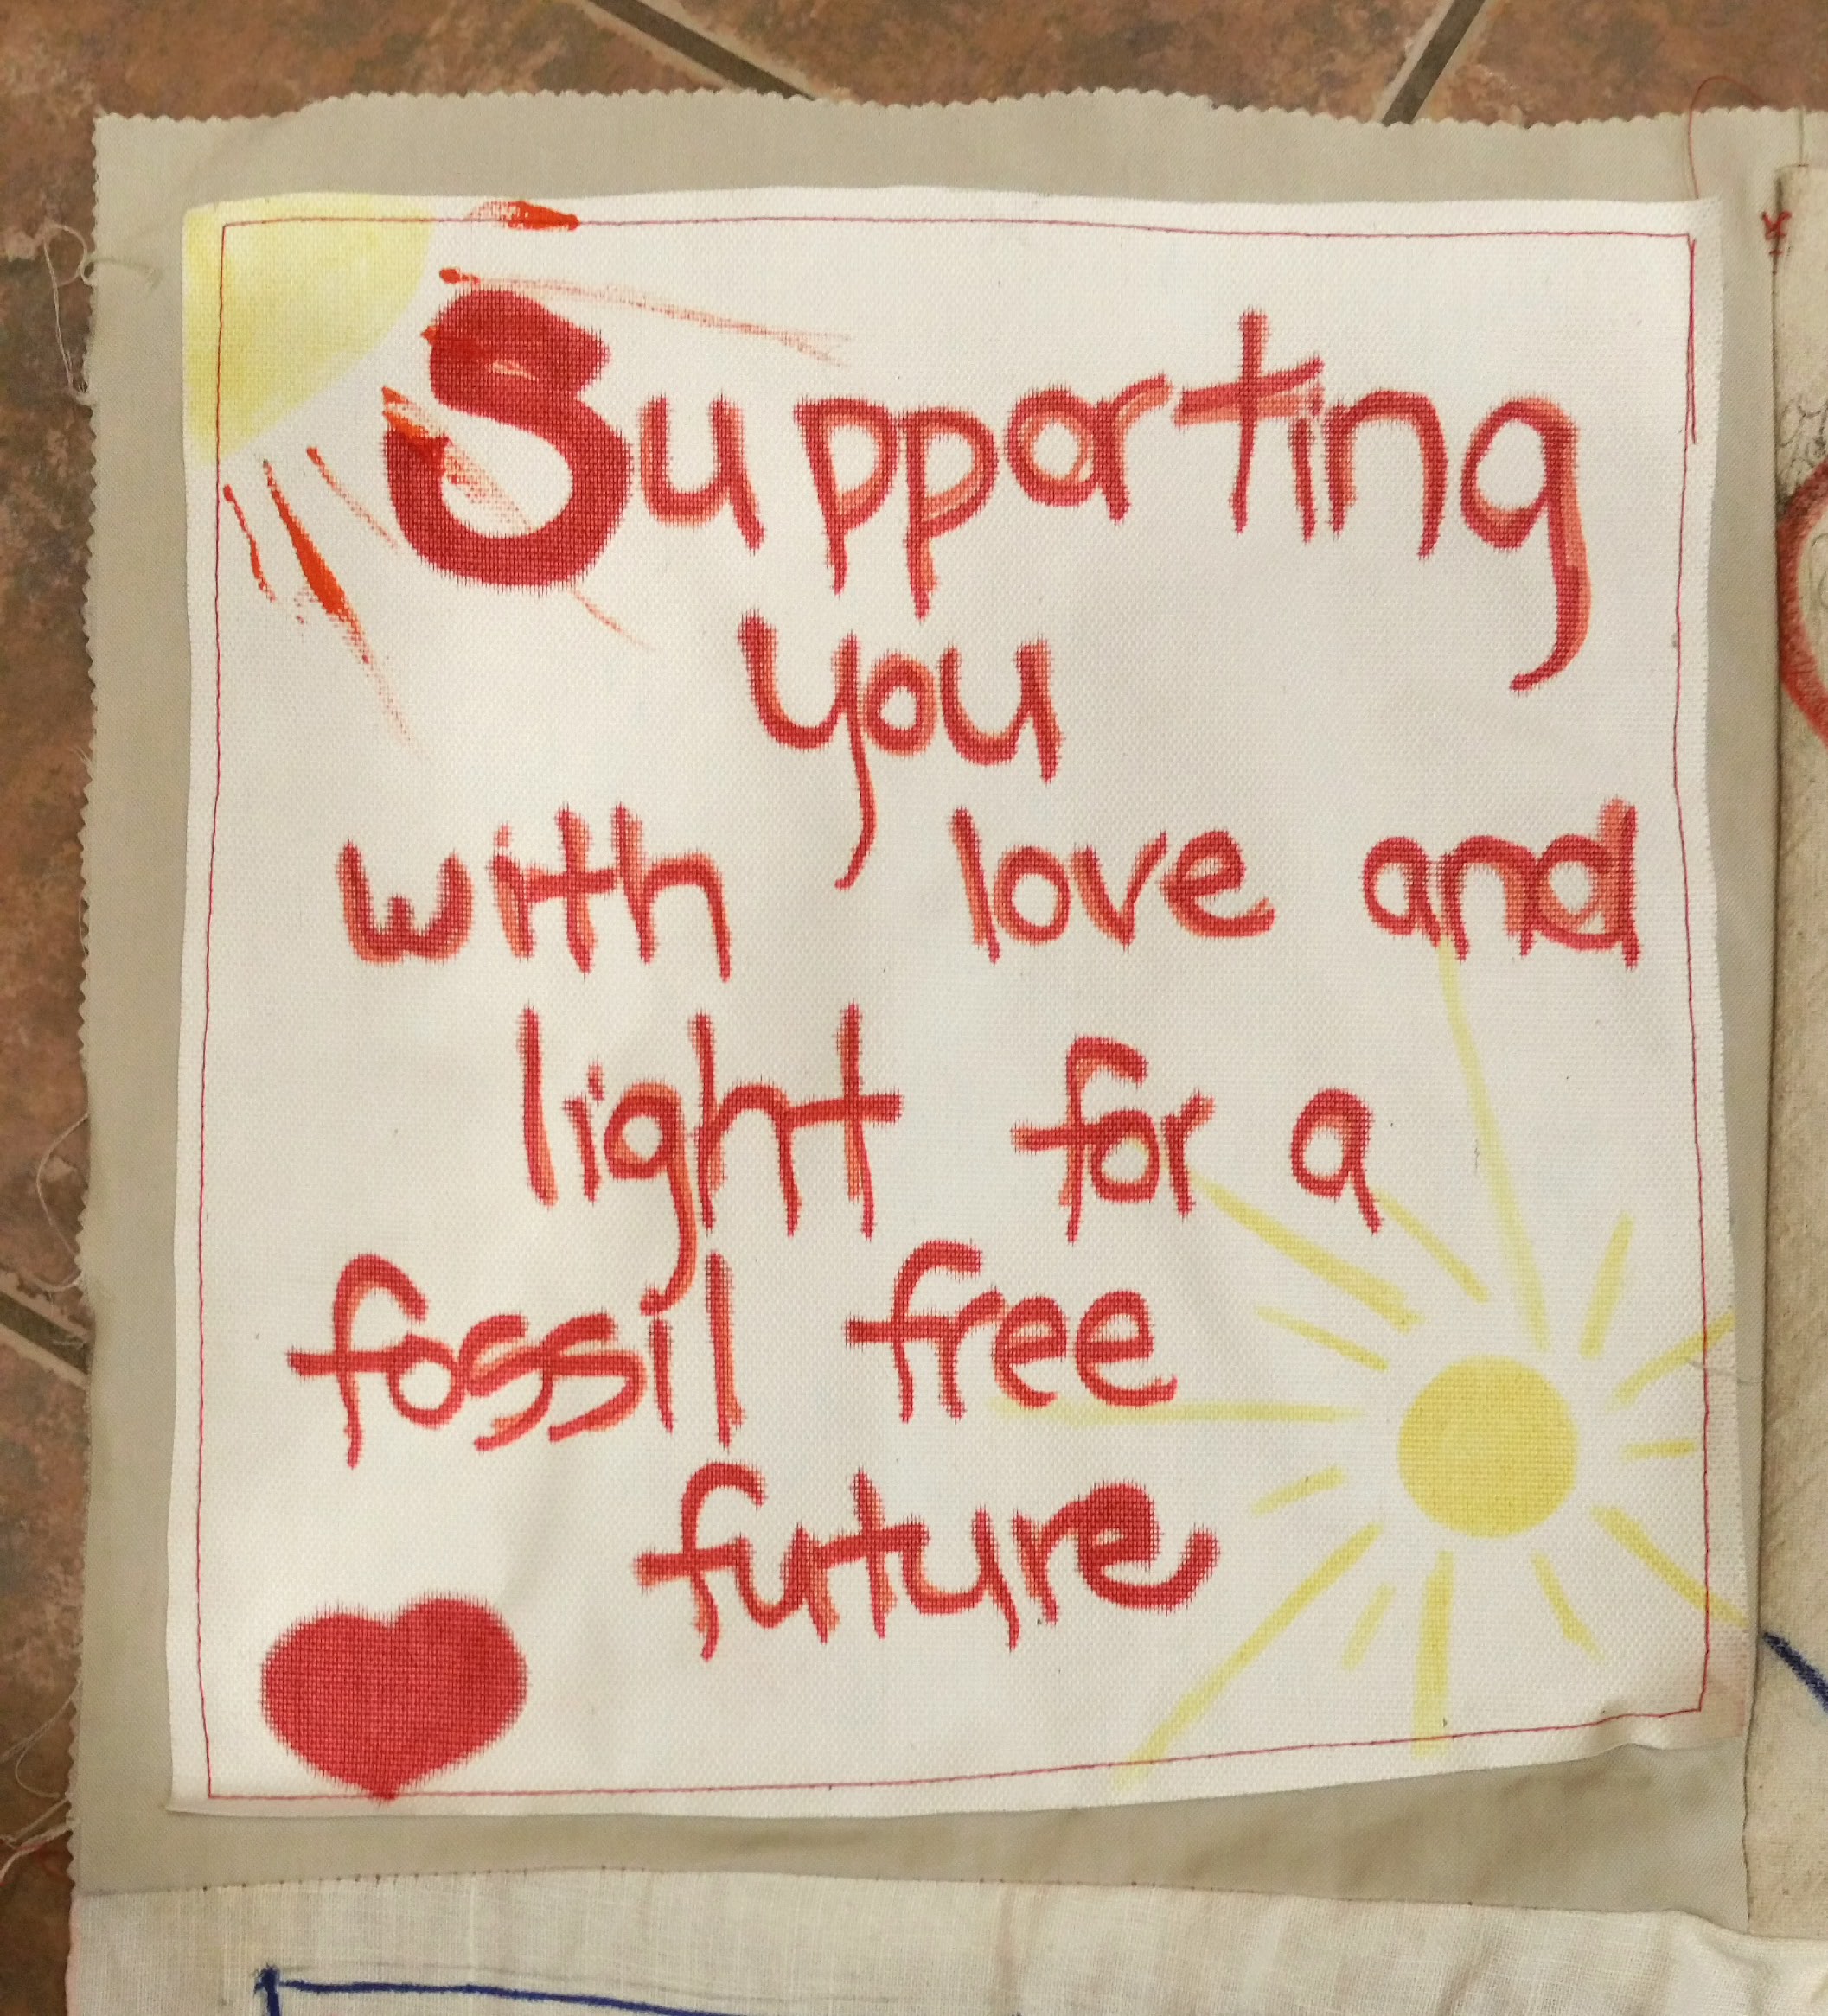 Supporting
you
with love and
light for a
fossil free
future